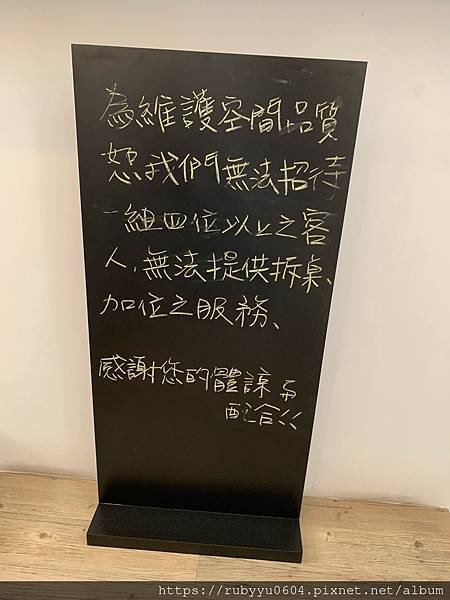 為維護空間品質
恕我們無法招待
一組四位以上之客
人,無法提供拆桌、
加位之服務、
感謝您的體諒與
配合
https://rubyyu0604.pixnet.net/album